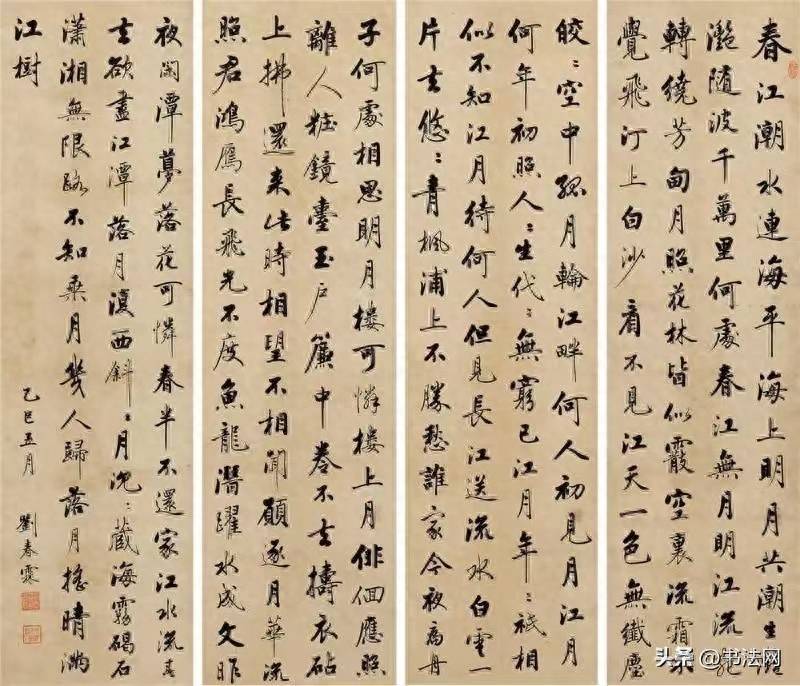 春江潮水連海平海上明月共潮生灔
灔隨波千萬里何處春江無月明江流宛
轉繞芳甸月照花林皆似霰空裏流霜不
覺飛汀上白沙看不見江天一色無纖塵
皎〻空中孤月輪江畔何人初見月江月
何年初照人〻生代〻無窮已江月年〻祗相
似不知江月待何人但見長江送流水白雲一
片去悠〻青楓浦上不勝愁誰家今夜扁舟
子何處相思明月樓可憐樓上月俳佪應照
離人粧鏡臺玉戶簾中卷不去擣衣砧
上拂還来此時相望不相聞願逐月華流
照君鴻雁長飛光不度魚龍潛躍水成文昨
夜閑潭夢落花可憐春半不還家江水流春
去欲盡江潭落月復西斜〻月沉〻藏海霧碣石
瀟湘無限路不知乘月幾人歸落月搖晴滿
江樹
乙巳五月 劉春霖
头条 @书法网